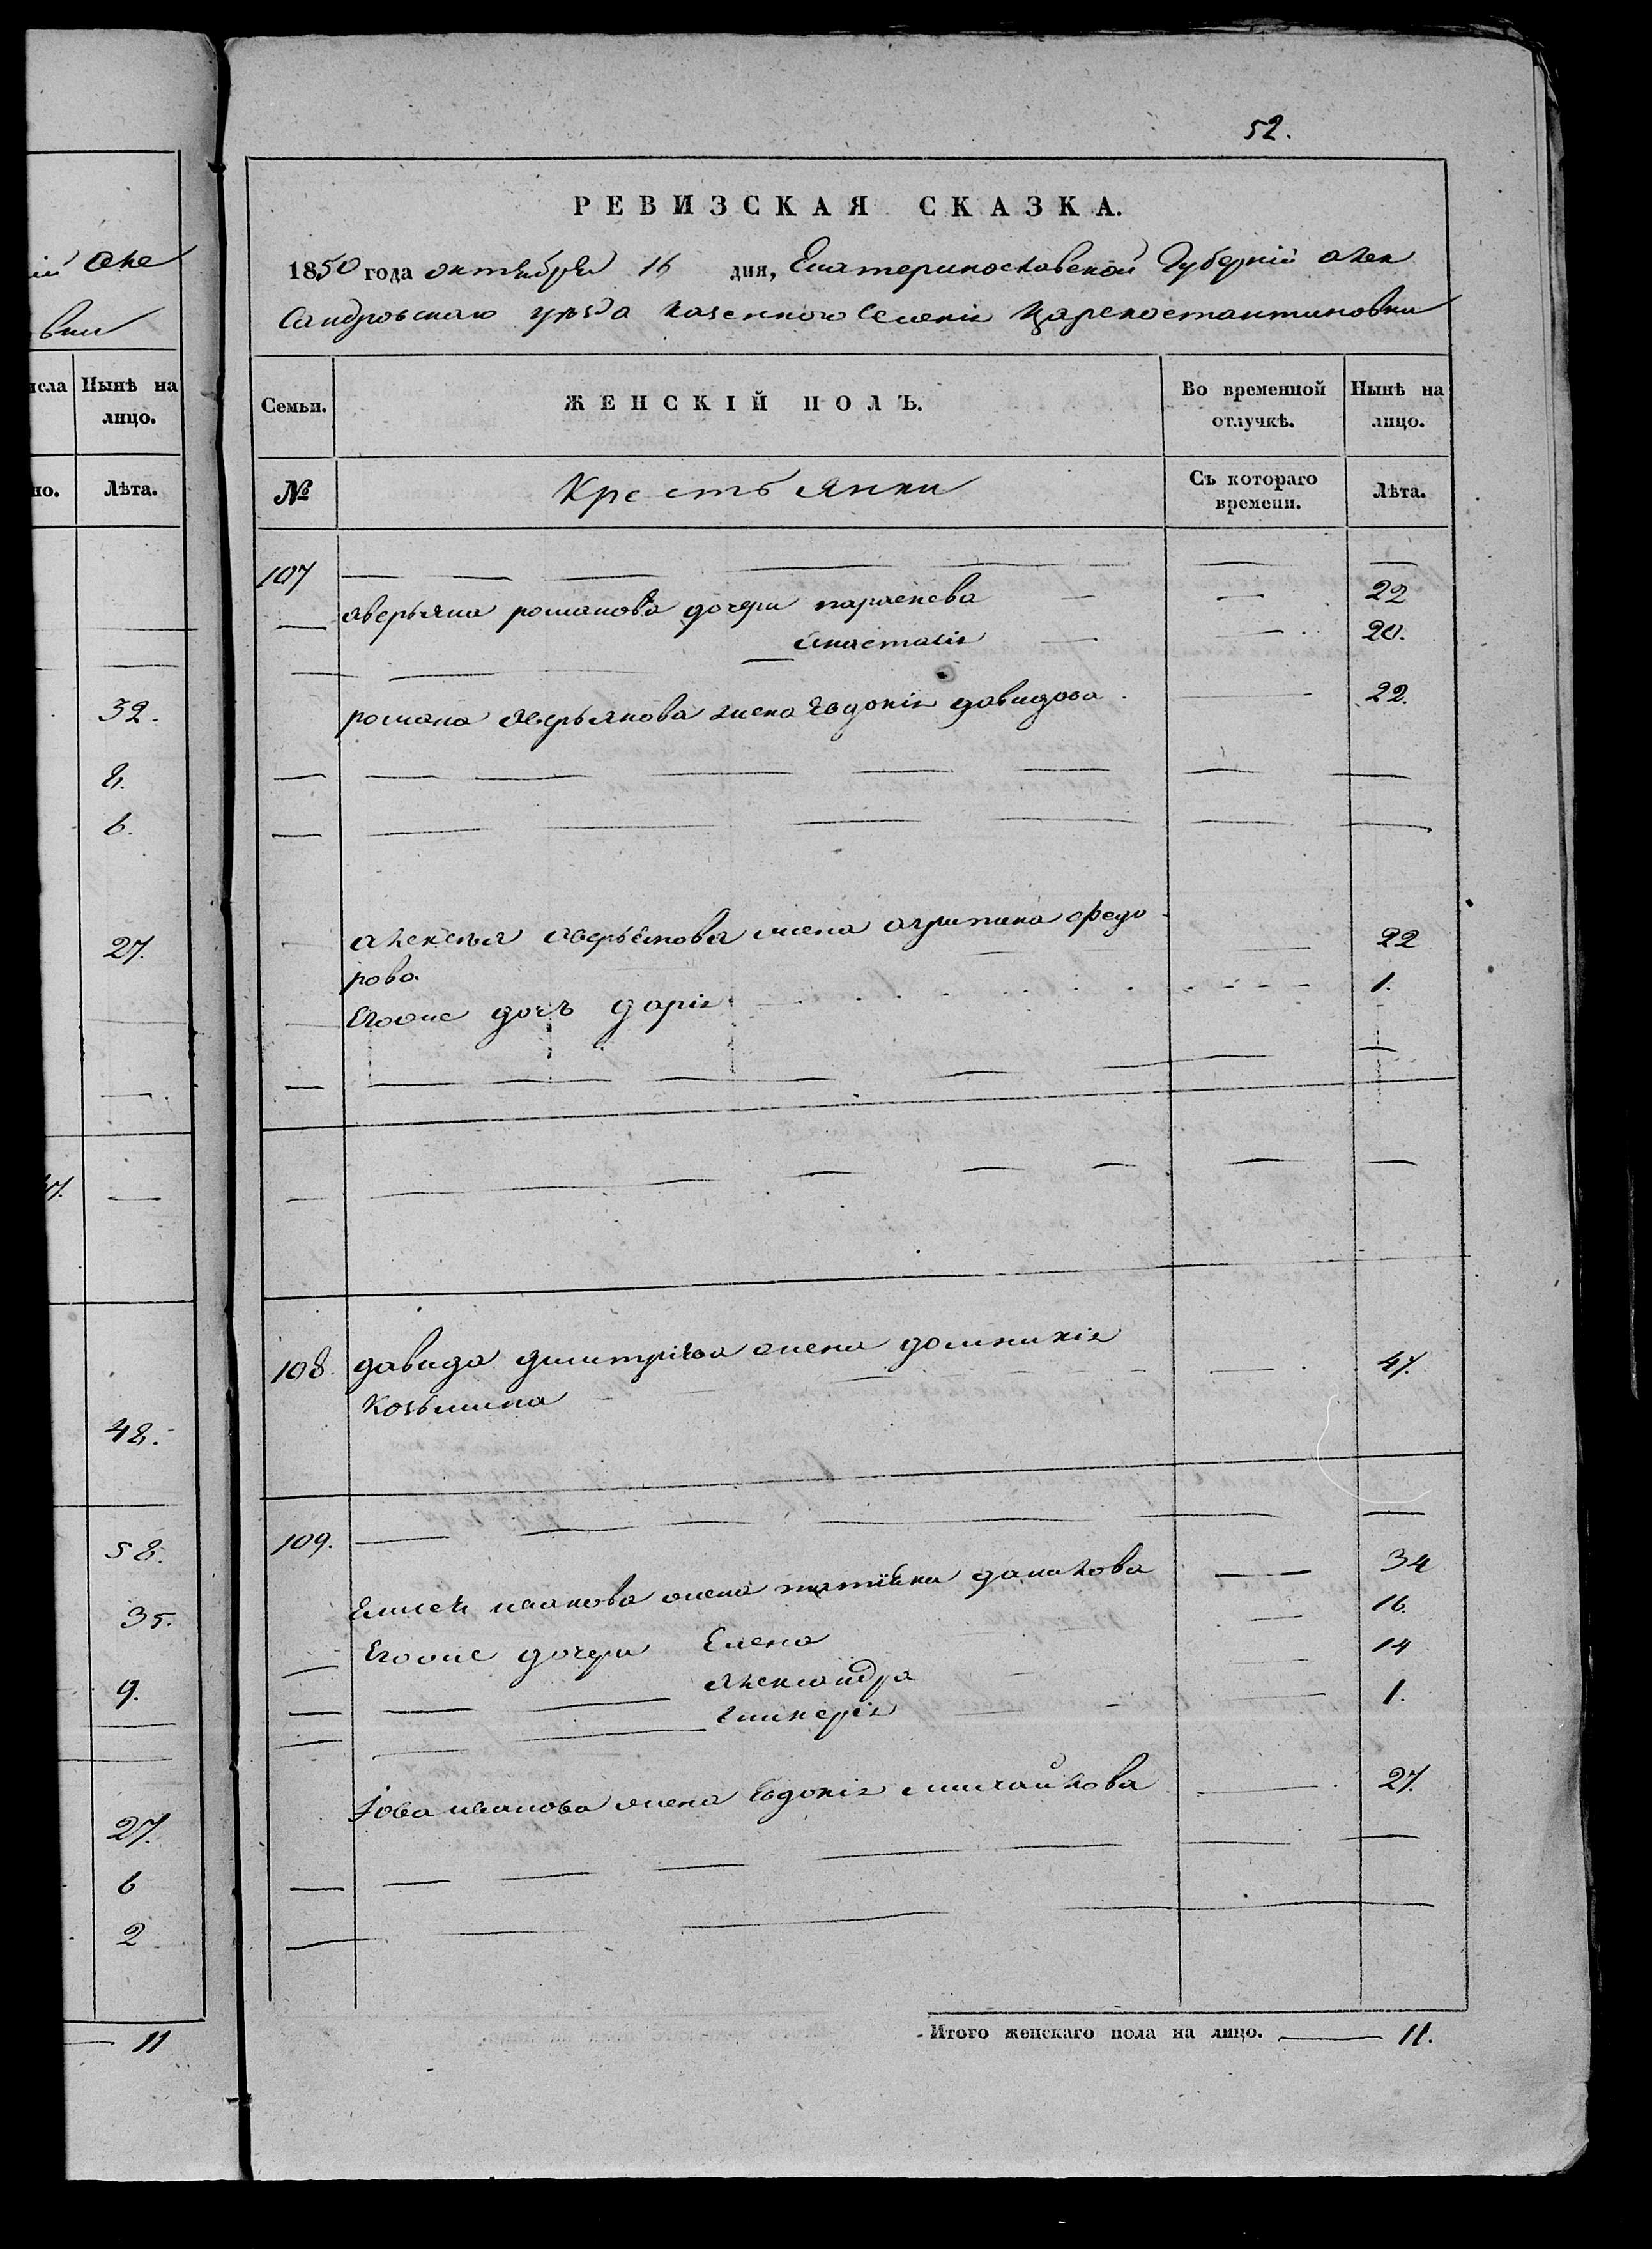 ій Але
вки
исла
Нынѣ на
лицо.
но.
Лѣта.
32.
8.
6.
27.
47.
48.
58.
35.
9.
27.
6
2
11
52.
РЕВИЗСКАЯ СКАЗКА.
1850 года октября 16 дня, Екатеринославской Губерніи Алек
сандровскаго уѣзда казенного селенія Цареконстантиновки
Семьи.
ЖЕНСКІЙ ПОЛЪ.
Во временной отлучкѣ.
Нынѣ на лицо.
№
Крестьянки
Съ котораго времени.
Лѣта.
107
аверьяна романова дочери парасковя 22
анастасія 20.
романа аверьянова жена евдокія давидова 22.
алексея аверьянова жена агрипина федо 22
рова
Егоже дочь дарія 1.
108. давида димитріева жена домникія 47.
козьмина
109.
Елисея иванова жена татіяна данилова 34
Егоже дочери Елена 16.
Александра 14
гликерія 1.
Іова иванова жена Евдокія михайлова 27.
Итого женскаго пола на лицо. 11.